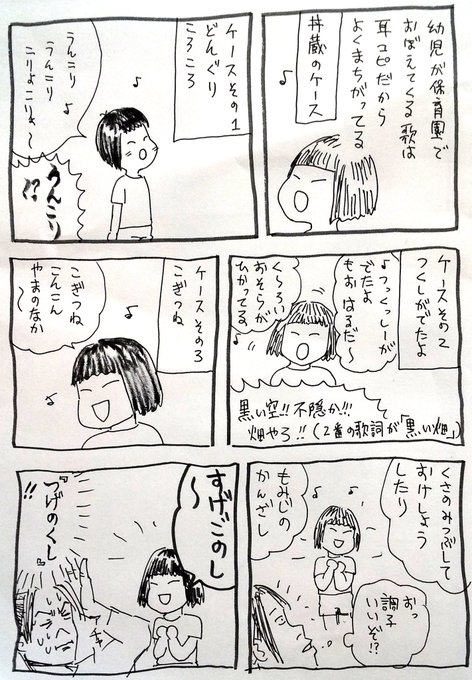 幼児が保育園で
おぼえてくる歌は
耳コピだから
よくまちがってる
丼蔵のケース
ケースその1
どんぐり
ころころ
うんこり
うんこり
こりよこりよ〜
うんこり
!?
ケースその2
つくしがでたよ
♪つっくっしーが
でたよ
もお はるだ〜
く〜ろい
おそらが
ひかってる
黒い空!!不隠か!!!
畑やろ!!(2番の歌詞が「黒い畑」)
ケースその3
こぎつね
こぎつね
こんこん
やまのなか
〜
くさのみつぶして
おけしょう
したり
もみじの
かんざし
おっ
調子
いいぞ!?
すげごのし
〜
『つげのくし』
!!